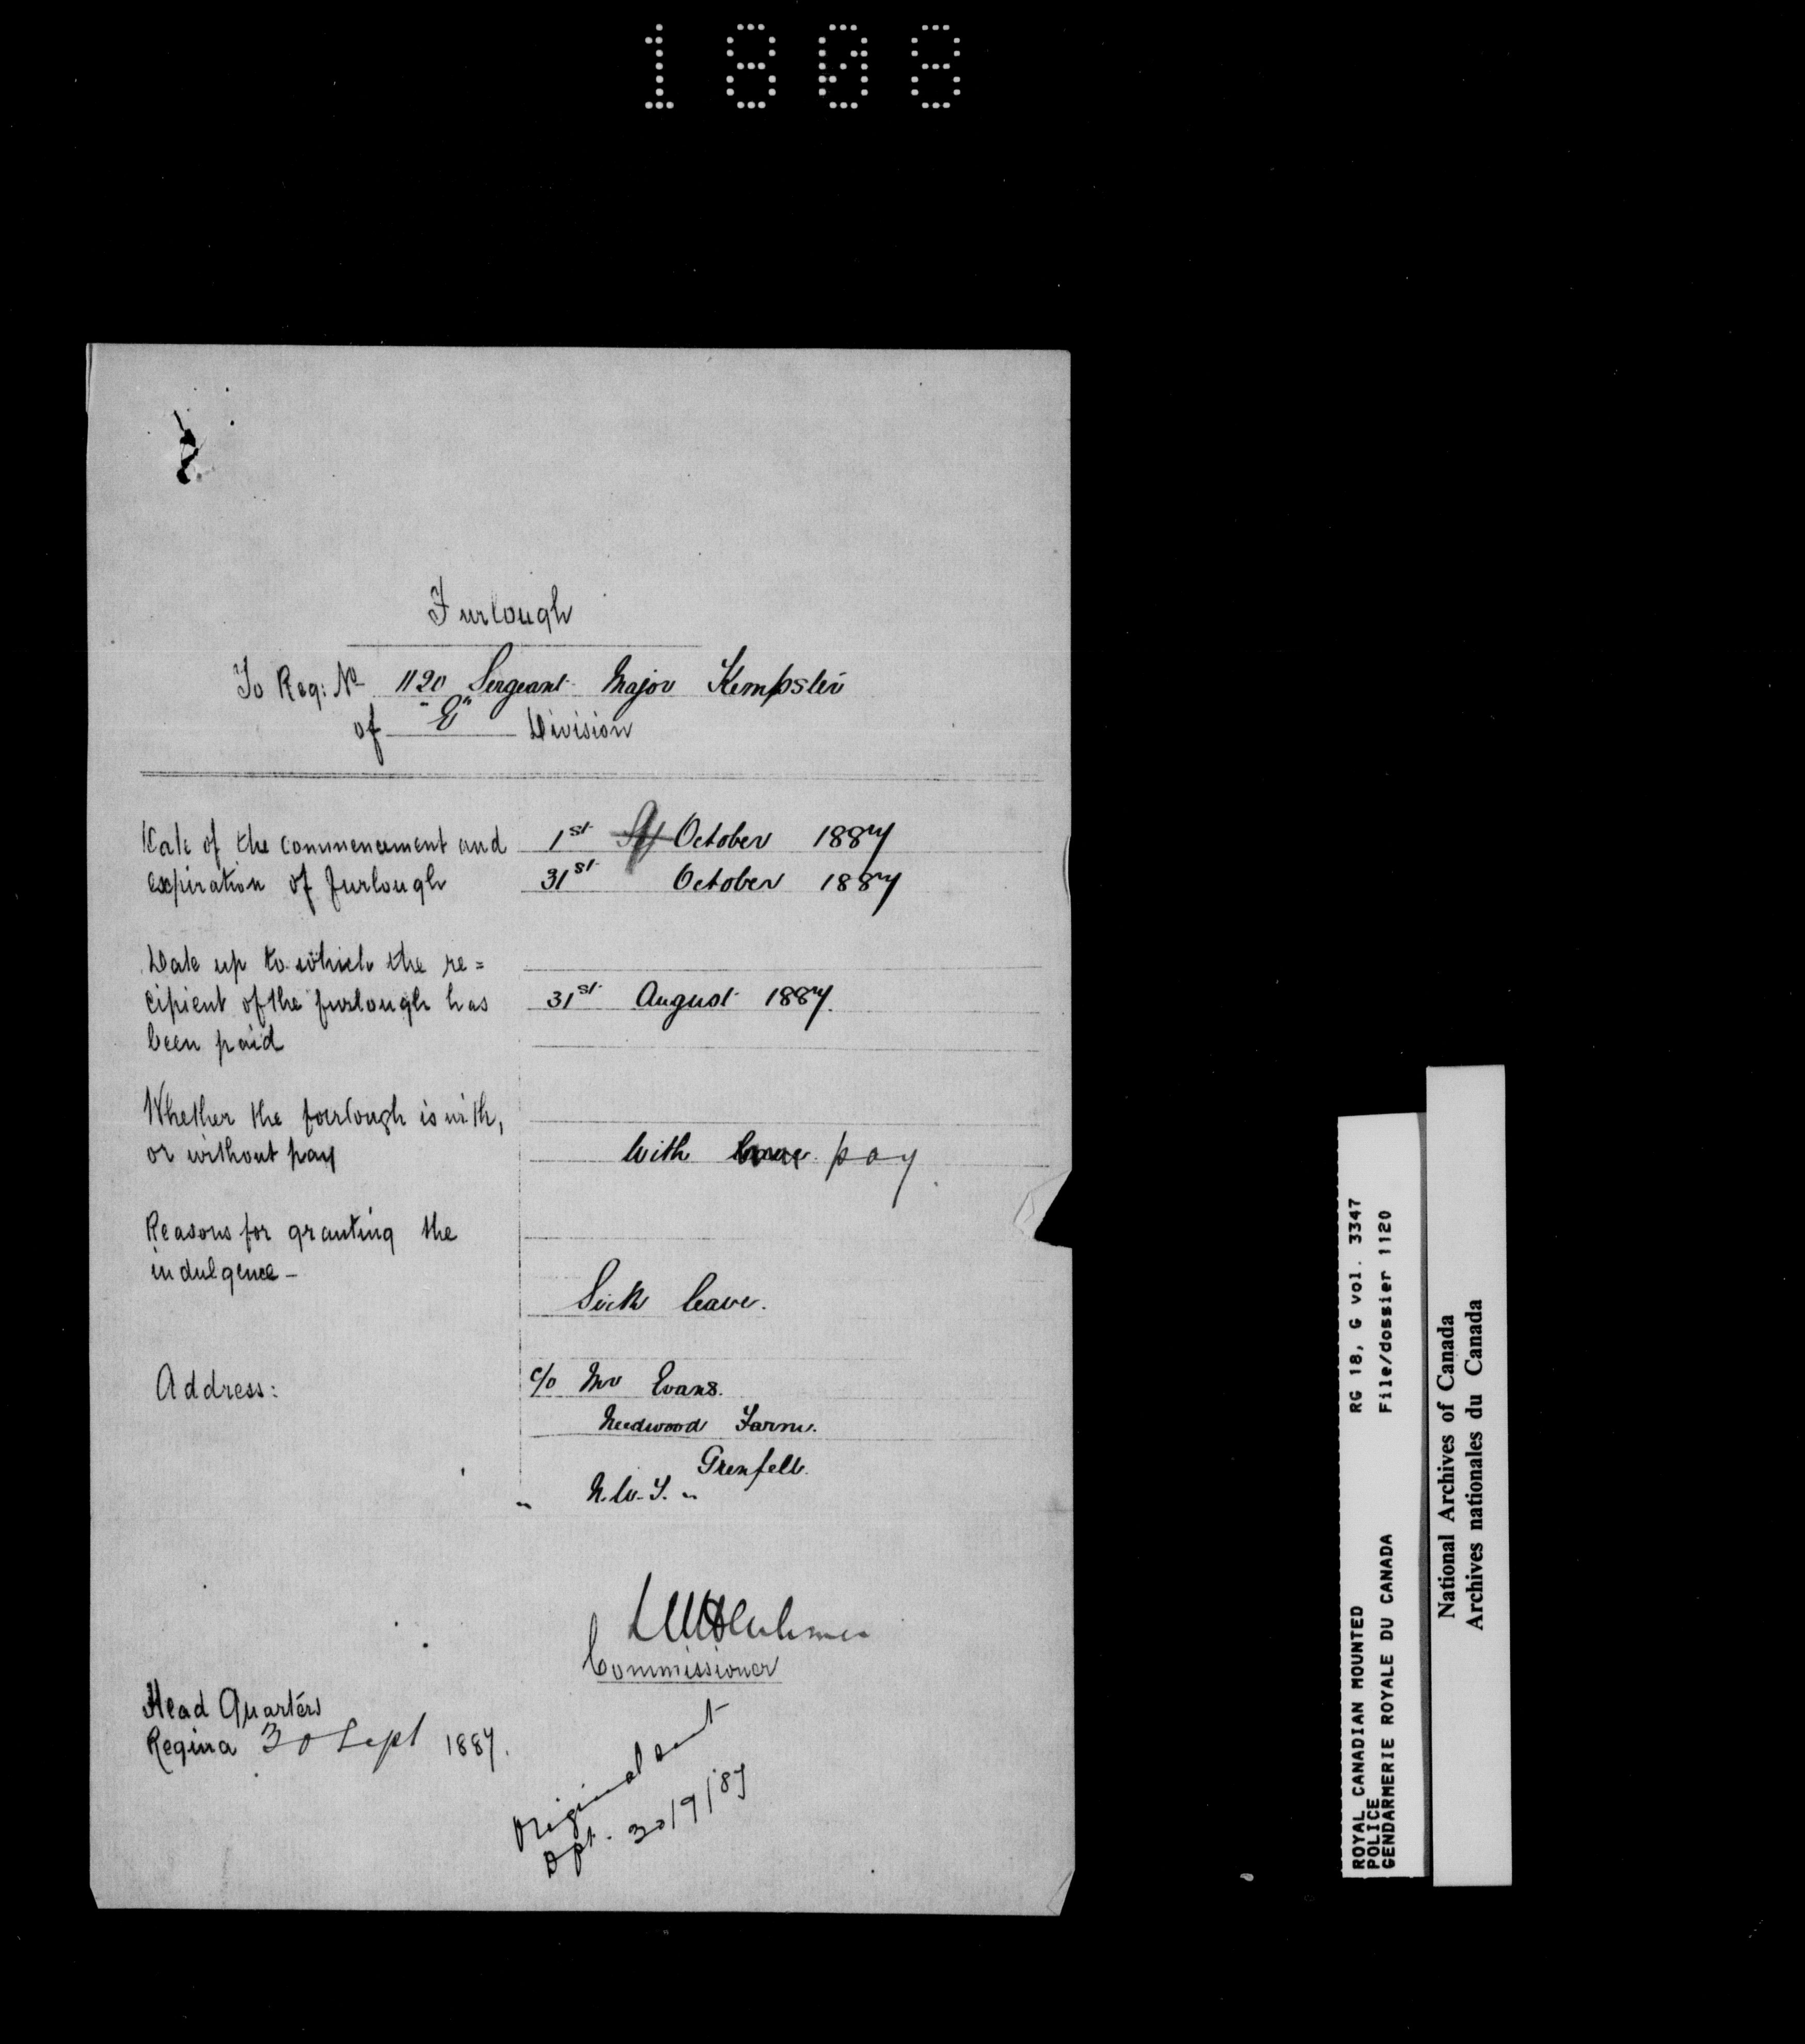 1808
Furlough
To Reg: No 1120 Sergeant Major Kempster
of "E" Division
Date of the commencement and 1st October 1887
expiration of furlough 31st October 1887
Date up to which the re=
cipient of the furlough has 31st August 1887.
been paid
Whether the furlough is with,
or without pay With pay
Reasons for granting the
indulgence -
Sick leave.
Address: c/o Mr Evans.
Needwood Farm.
Grenfell.
" N.W.T. "
Commissioner
Head Quarters
Regina 30 Sept 1887.
Original sent
Dpt. 30/9/87
ROYAL CANADIAN MOUNTED RG 18, G vol. 3347
POLICE
GENDARMERIE ROYALE DU CANADA File/dossier 1120
National Archives of Canada
Archives nationales du Canada